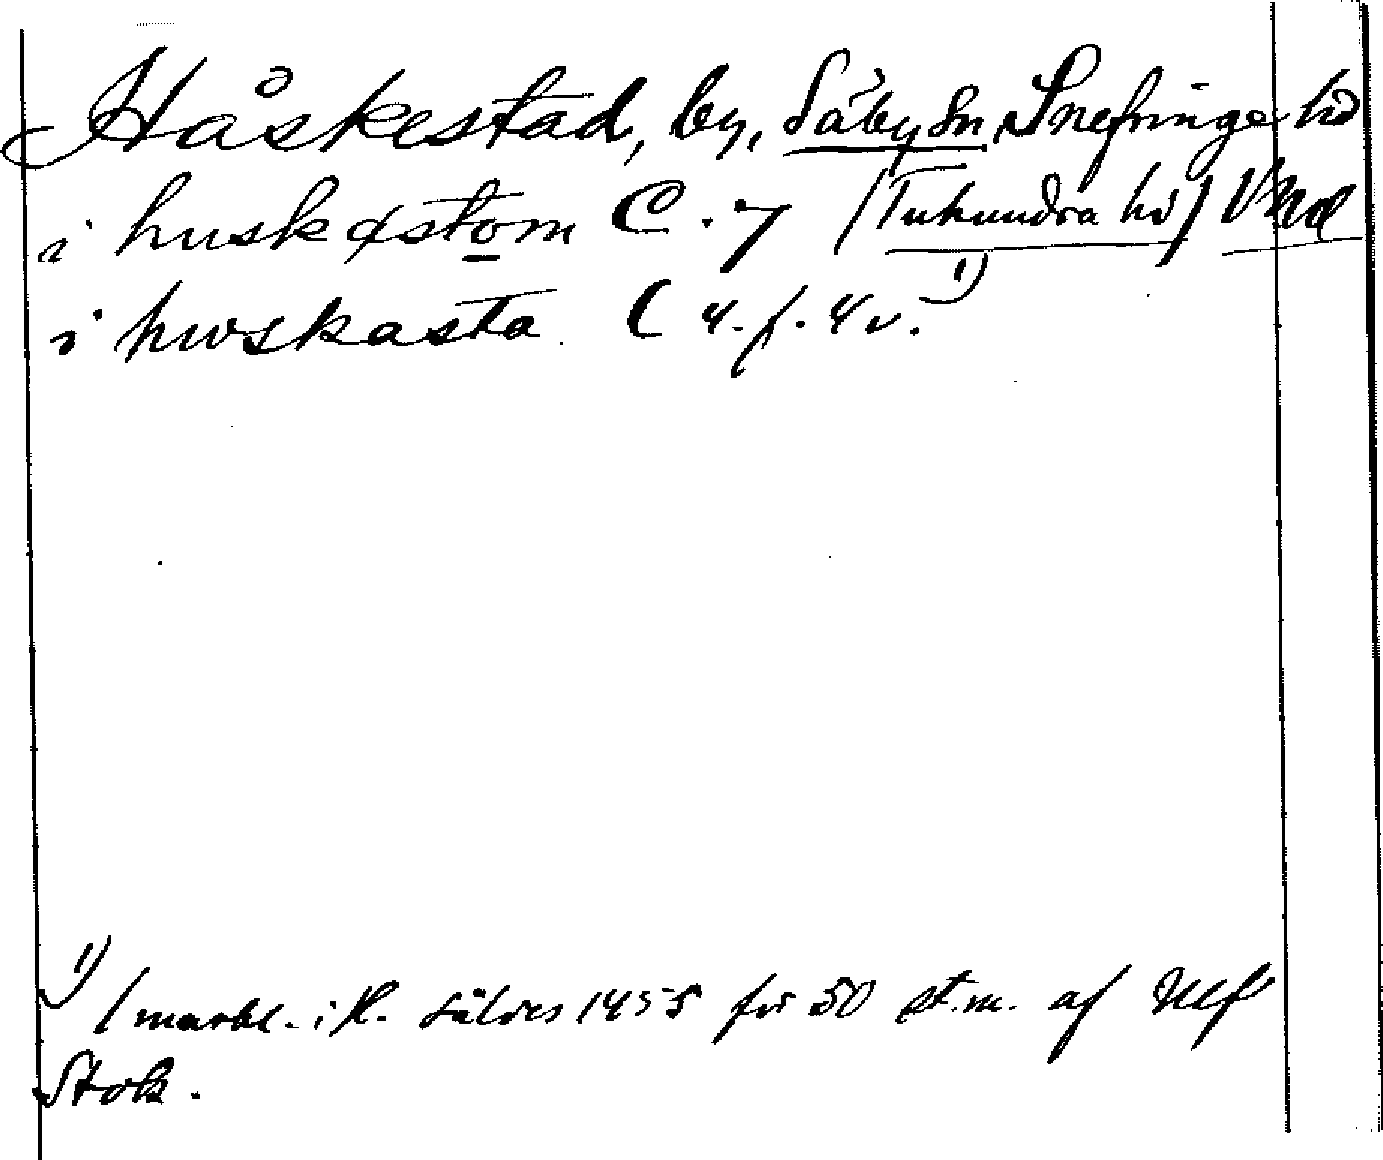 Håskestad, by, Säby sn, Snefringe hd
i huskøstom C. 7 (Tuhundra hd) Vmd
i hwskasta C 4. f. 4 v. 1)
1) 1 markl. i H. såldes 1455 för 50 st.m. af Ulf
Stok.